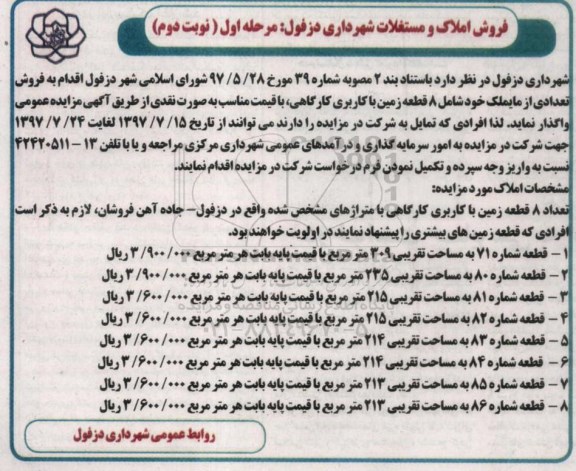 فروش املاک و مستغلات شهرداری دزفول: مرحله اول (نوبت دوم)
شهرداری دزفول در نظر دارد باستناد بند ۲ مصوبه شماره ۳۹ مورخ ۹۷/۵/۲۸ شورای اسلامی شهر دزفول اقدام به فروش
تعدادی از مایملک خود شامل ۸ قطعه زمین با کاربری کارگاهی، با قیمت مناسب به صورت نقدی از طریق آگهی مزایده عمومی
واگذار نماید. لذا افرادی که تمایل به شرکت در مزایده را دارند می توانند از تاریخ ۱۳۹۷/۷/۱۵ لغایت ۱۳۹۷/۷/۲۴
جهت شرکت در مزایده به امور سرمایه گذاری و درآمدهای عمومی شهرداری مرکزی مراجعه و یا با تلفن ۱۳-۴۲۴۲۰۵۱۱
نسبت به واریز وجه سپرده و تکمیل نمودن فرم درخواست شرکت در مزایده اقدام نمایند.
مشخصات املاک مورد مزایده:
تعداد ۸ قطعه زمین با کاربری کارگاهی با متراژهای مشخص شده واقع در دزفول- جاده آهن فروشان، لازم به ذکر است
افرادی که قطعه زمین های بیشتری را پیشنهاد نمایند در اولویت خواهند بود.
۱- قطعه شماره ۷۱ به مساحت تقریبی ۳۰۹ متر مربع با قیمت پایه بابت هر متر مربع ۳/۹۰۰/۰۰۰ ریال
۲- قطعه شماره ۸۰ به مساحت تقریبی ۲۳۵ متر مربع با قیمت پایه بابت هر متر مربع ۳/۹۰۰/۰۰۰ ریال
۳- قطعه شماره ۸۱ به مساحت تقریبی ۲۱۵ متر مربع با قیمت پایه بابت هر متر مربع ۳/۶۰۰/۰۰۰ ریال
۴- قطعه شماره ۸۲ به مساحت تقریبی ۲۱۵ متر مربع با قیمت پایه بابت هر متر مربع ۳/۶۰۰/۰۰۰ ریال
۵- قطعه شماره ۸۳ به مساحت تقریبی ۲۱۴ متر مربع با قیمت پایه بابت هر متر مربع ۳/۶۰۰/۰۰۰ ریال
۶- قطعه شماره ۸۴ به مساحت تقریبی ۲۱۴ متر مربع با قیمت پایه بابت هر متر مربع ۳/۶۰۰/۰۰۰ ریال
۷- قطعه شماره ۸۵ به مساحت تقریبی ۲۱۳ متر مربع با قیمت پایه بابت هر متر مربع ۳/۶۰۰/۰۰۰ ریال
۸- قطعه شماره ۸۶ به مساحت تقریبی ۲۱۳ متر مربع با قیمت پایه بابت هر متر مربع ۳/۶۰۰/۰۰۰ ریال
روابط عمومی شهرداری دزفول